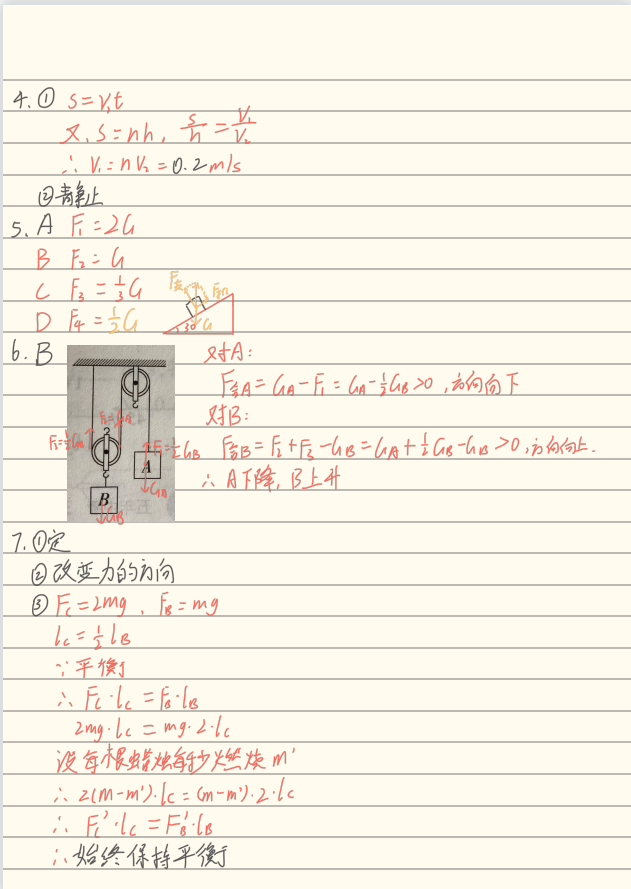 4. ① s=v₁t
又∵s=nh, s/h=v₁/v₂
∴ v₁=nv₂=0.2m/s
②静止
5. A F₁=2G
B F₂=G
C F₃=1/3G
D F₄=1/2G
30° G
6. B
对A:
F合A=GA-F₁=GA-1/2GB>0,方向向下
对B:
F合B=F₂+F₃-GB=GA+1/2GB-GB>0,方向向上.
∴A下降,B上升
A
GA
B
GB
7. ①定
②改变力的方向
③FC=2mg, FB=mg
lC=1/2lB
∵平衡
∴FC·lC=FB·lB
2mg·lC=mg·2·lC
设每根蜡烛每秒燃烧m'
∴2(m-m')·lC=(m-m')·2·lC
∴FC'·lC=FB'·lB
∴始终保持平衡